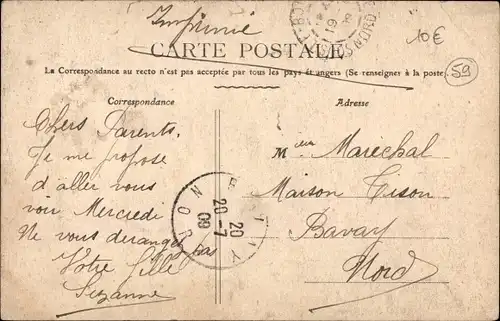 Imprimé
CARTE POSTALE
10€
59
La Correspondance au recto n'est pas acceptée par tous les pays étrangers (Se renseigner à la poste)
Correspondance
Adresse
Chers Parents,
Je me propose
d'aller vous
voir Mercredi
Ne vous derangez pas
Votre fille
Suzanne
20
20-7
09
NORD
19
NORD
Mr Maréchal
Maison Tison
Bavay
Nord